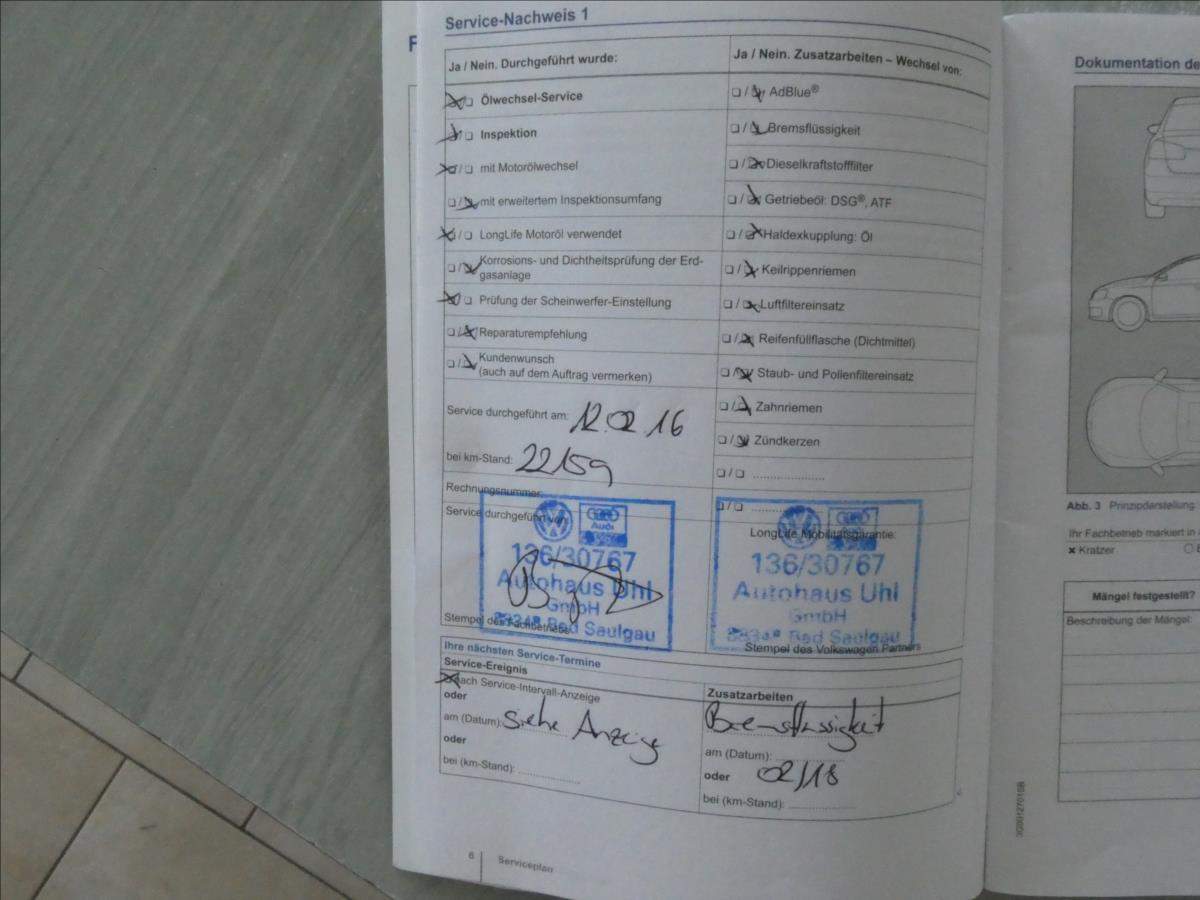 Service-Nachweis 1
Ja / Nein. Durchgeführt wurde:
Ölwechsel-Service
Inspektion
mit Motorölwechsel
mit erweitertem Inspektionsumfang
LongLife Motoröl verwendet
Korrosions- und Dichtheitsprüfung der Erd-
gasanlage
Prüfung der Scheinwerfer-Einstellung
Reparaturempfehlung
Kundenwunsch
(auch auf dem Auftrag vermerken)
Service durchgeführt am: 12.02.16
bei km-Stand: 22159
Rechnungsnummer:
Service durchgeführt von:
Audi
136/30767
Autohaus Uhl
GmbH
88348 Bad Saulgau
Stempel des Fachbetriebes
Ja / Nein. Zusatzarbeiten – Wechsel von:
AdBlue®
Bremsflüssigkeit
Dieselkraftstofffilter
Getriebeöl: DSG®, ATF
Haldexkupplung: Öl
Keilrippenriemen
Luftfiltereinsatz
Reifenfüllflasche (Dichtmittel)
Staub- und Pollenfiltereinsatz
Zahnriemen
Zündkerzen
LongLife Mobilitätsgarantie:
136/30767
Autohaus Uhl
GmbH
88348 Bad Saulgau
Stempel des Volkswagen Partners
Ihre nächsten Service-Termine
Service-Ereignis
nach Service-Intervall-Anzeige
oder
am (Datum): siehe Anzeige
oder
bei (km-Stand):
Zusatzarbeiten
Bremsflüssigkeit
am (Datum):
oder 02/18
bei (km-Stand):
6 Serviceplan
Dokumentation de
Abb. 3 Prinzipdarstellung
Ihr Fachbetrieb markiert in
× Kratzer
Mängel festgestellt?
Beschreibung der Mängel: